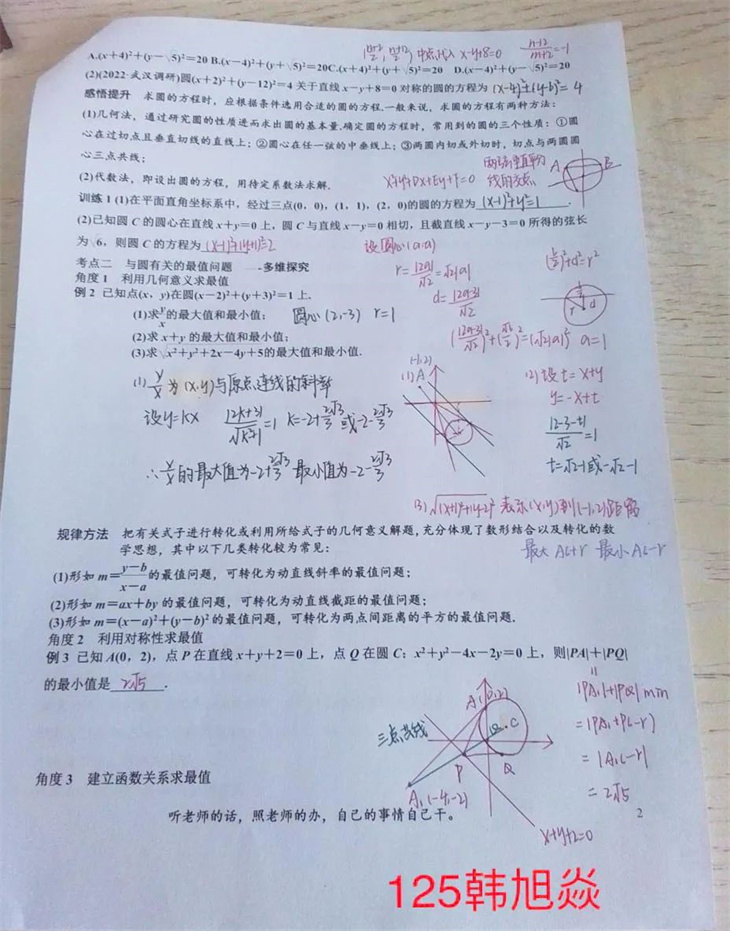 A.(x+4)²+(y-√5)²=20 B.(x-4)²+(y+√5)²=20C.(x+4)²+(y+√5)²=20 D.(x-4)²+(y-√5)²=20
中点代入 x-y+8=0
(2)(2022·武汉调研)圆(x+2)²+(y-12)²=4 关于直线x-y+8=0对称的圆的方程为 (x-4)²+(y-6)²=4
感悟提升 求圆的方程时，应根据条件选用合适的圆的方程.一般来说，求圆的方程有两种方法：
(1)几何法，通过研究圆的性质进而求出圆的基本量.确定圆的方程时，常用到的圆的三个性质：①圆
心在过切点且垂直切线的直线上；②圆心在任一弦的中垂线上；③两圆内切或外切时，切点与两圆圆
心三点共线；
(2)代数法，即设出圆的方程，用待定系数法求解.
x²+y²+Dx+Ey+F=0
线的交点
A B
训练1 (1)在平面直角坐标系中，经过三点(0，0)，(1，1)，(2，0)的圆的方程为 (x-1)²+y²=1 .
(2)已知圆C的圆心在直线x+y=0上，圆C与直线x-y=0相切，且截直线x-y-3=0所得的弦长
为√6，则圆C的方程为 (x-1)²+(y+1)²=2
设圆心(a.-a)
r=|2a|/√2=√2|a|
d=|2a-3|/√2
(|2a-3|/√2)²+(√6/2)²=(√2|a|)² a=1
r d
考点二 与圆有关的最值问题 -多维探究
角度1 利用几何意义求最值
例2 已知点(x，y)在圆(x-2)²+(y+3)²=1上.
(1)求y/x的最大值和最小值； 圆心(2,-3) r=1
(2)求x+y的最大值和最小值；
(3)求√x²+y²+2x-4y+5的最大值和最小值.
(1) y/x为(x,y)与原点连线的斜率
设y=kx |2k+3|/√k²+1=1 k=-2+2√3/3或-2-2√3/3
∴y/x的最大值为-2+2√3/3 最小值为-2-2√3/3
(-1,2)
(1) A
(2)设t=x+y
y=-x+t
|2-3-t|/√2=1
t=√2-1或-√2-1
(3)√(x+1)²+(y-2)² 表示(x,y)到(-1,2)距离
最大AC+r 最小AC-r
规律方法 把有关式子进行转化或利用所给式子的几何意义解题，充分体现了数形结合以及转化的数
学思想，其中以下几类转化较为常见：
(1)形如m=(y-b)/(x-a)的最值问题，可转化为动直线斜率的最值问题；
(2)形如m=ax+by的最值问题，可转化为动直线截距的最值问题；
(3)形如m=(x-a)²+(y-b)²的最值问题，可转化为两点间距离的平方的最值问题.
角度2 利用对称性求最值
例3 已知A(0，2)，点P在直线x+y+2=0上，点Q在圆C：x²+y²-4x-2y=0上，则|PA|+|PQ|
的最小值是 2√5 .
|PA₁|+|PQ| min
=|PA₁+PC-r|
=|A₁C-r|
=2√5
A(0,2)
三点共线
C
P Q
A₁(-4,-2)
x+y+2=0
角度3 建立函数关系求最值
听老师的话，照老师的办，自己的事情自己干。
2
125韩旭焱